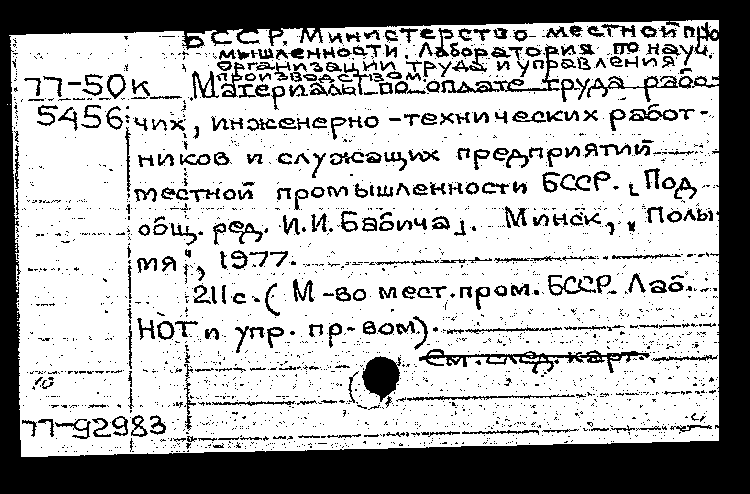 БССР. Министерство местной про
мышленности. Лаборатория по науч.
организации труда и управления
производством.
77-50к Материалы по оплате труда рабо-
5456 чих, инженерно-технических работ-
ников и служащих предприятий
местной промышленности БССР. [Под
общ. ред. И.И. Бабича]. Минск, "Полы
мя", 1977.
211с. (М-во мест. пром. БССР. Лаб.
НОТ и упр. пр-вом).
См. след. карт.
10
77-92983